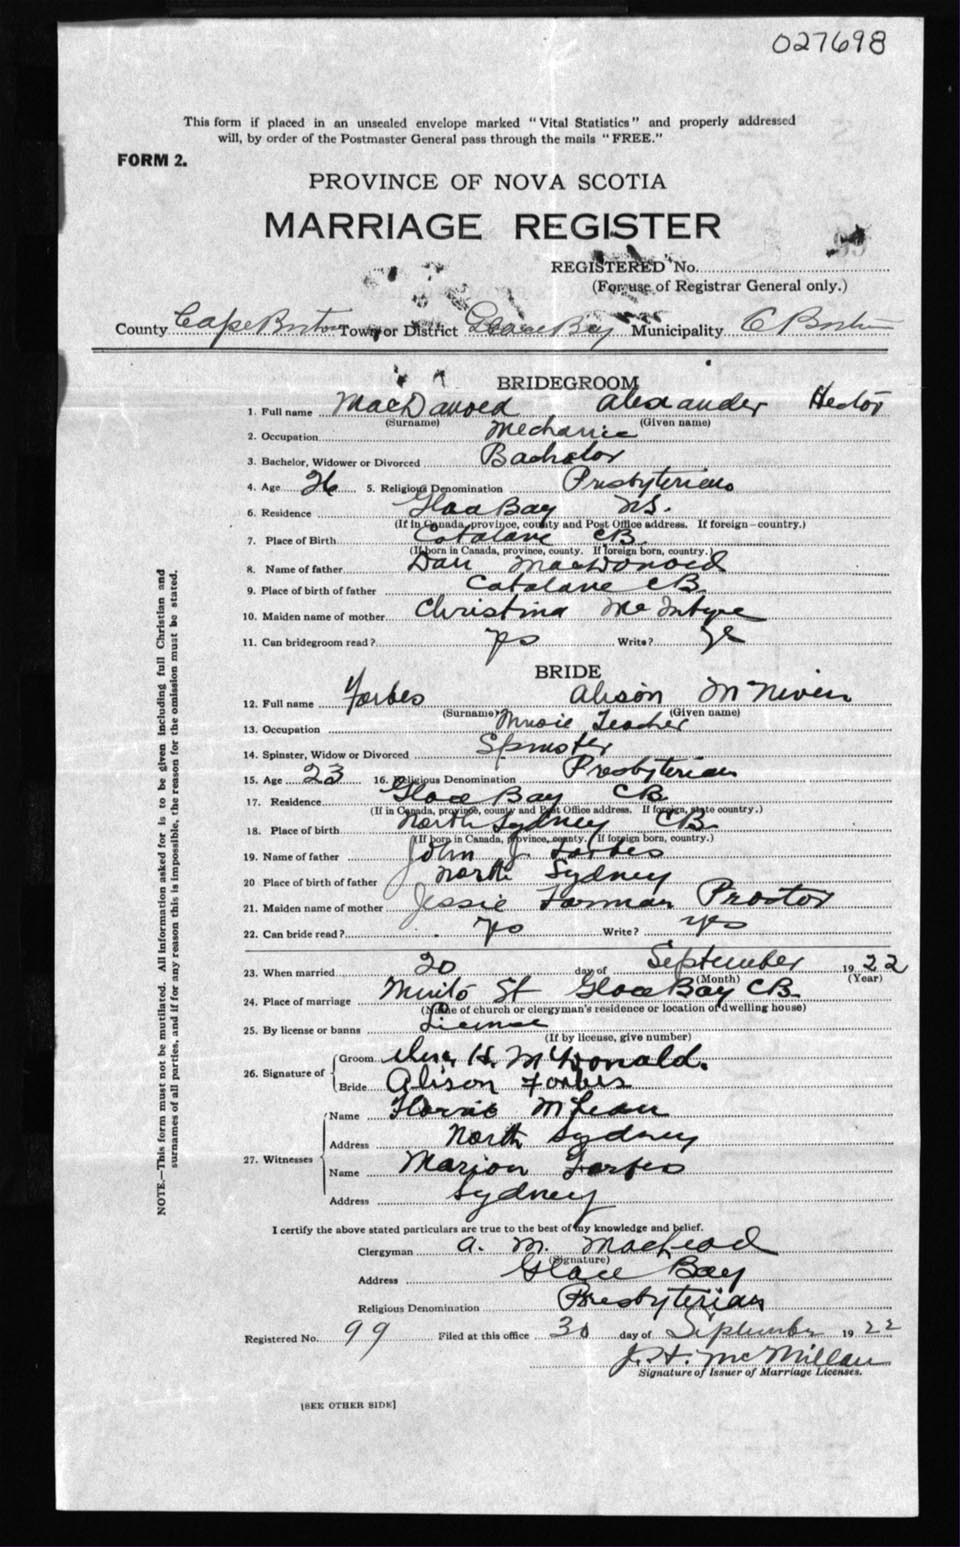 027698
This form if placed in an unsealed envelope marked "Vital Statistics" and properly addressed
will, by order of the Postmaster General pass through the mails "FREE."
FORM 2.
PROVINCE OF NOVA SCOTIA
MARRIAGE REGISTER
REGISTERED No.
(For use of Registrar General only.)
County Cape Breton Town or District Glace Bay Municipality C Breton
BRIDEGROOM
1. Full name MacDonald Alexander Hector
(Surname) (Given name)
2. Occupation Mechanic
3. Bachelor, Widower or Divorced Bachelor
4. Age 26 5. Religious Denomination Presbyterian
6. Residence Glace Bay NS.
(If in Canada, province, county and Post Office address. If foreign—country.)
7. Place of Birth Catalone CB.
(If born in Canada, province, county. If foreign born, country.)
8. Name of father Dan MacDonald
9. Place of birth of father Catalone CB.
10. Maiden name of mother Christina McIntyre
11. Can bridegroom read? yes Write? yes
BRIDE
12. Full name Forbes Alison McNiven
(Surname) (Given name)
13. Occupation Music Teacher
14. Spinster, Widow or Divorced Spinster
15. Age 23 16. Religious Denomination Presbyterian
17. Residence Glace Bay CB
(If in Canada, province, county and Post Office address. If foreign, state country.)
18. Place of birth North Sydney CB
(If born in Canada, province, county. If foreign born, country.)
19. Name of father John J. Forbes
20 Place of birth of father North Sydney
21. Maiden name of mother Jessie Forman Proctor
22. Can bride read? yes Write? yes
23. When married 20 day of September 1922
(Month) (Year)
24. Place of marriage Minto St Glace Bay CB.
(Name of church or clergyman's residence or location of dwelling house)
25. By license or banns License
(If by license, give number)
26. Signature of Groom H. McDonald.
Bride Alison Forbes
27. Witnesses Name McLean
Address North Sydney
Name Marion Forbes
Address Sydney
I certify the above stated particulars are true to the best of my knowledge and belief.
Clergyman A. M. MacLeod
(Signature)
Address Glace Bay
Religious Denomination Presbyterian
Registered No. 99 Filed at this office 30 day of September 1922
J. H. McMillan
Signature of Issuer of Marriage Licenses.
[SEE OTHER SIDE]
NOTE.—This form must not be mutilated. All information asked for is to be given including full Christian and
surnames of all parties, and if for any reason this is impossible, the reason for the omission must be stated.